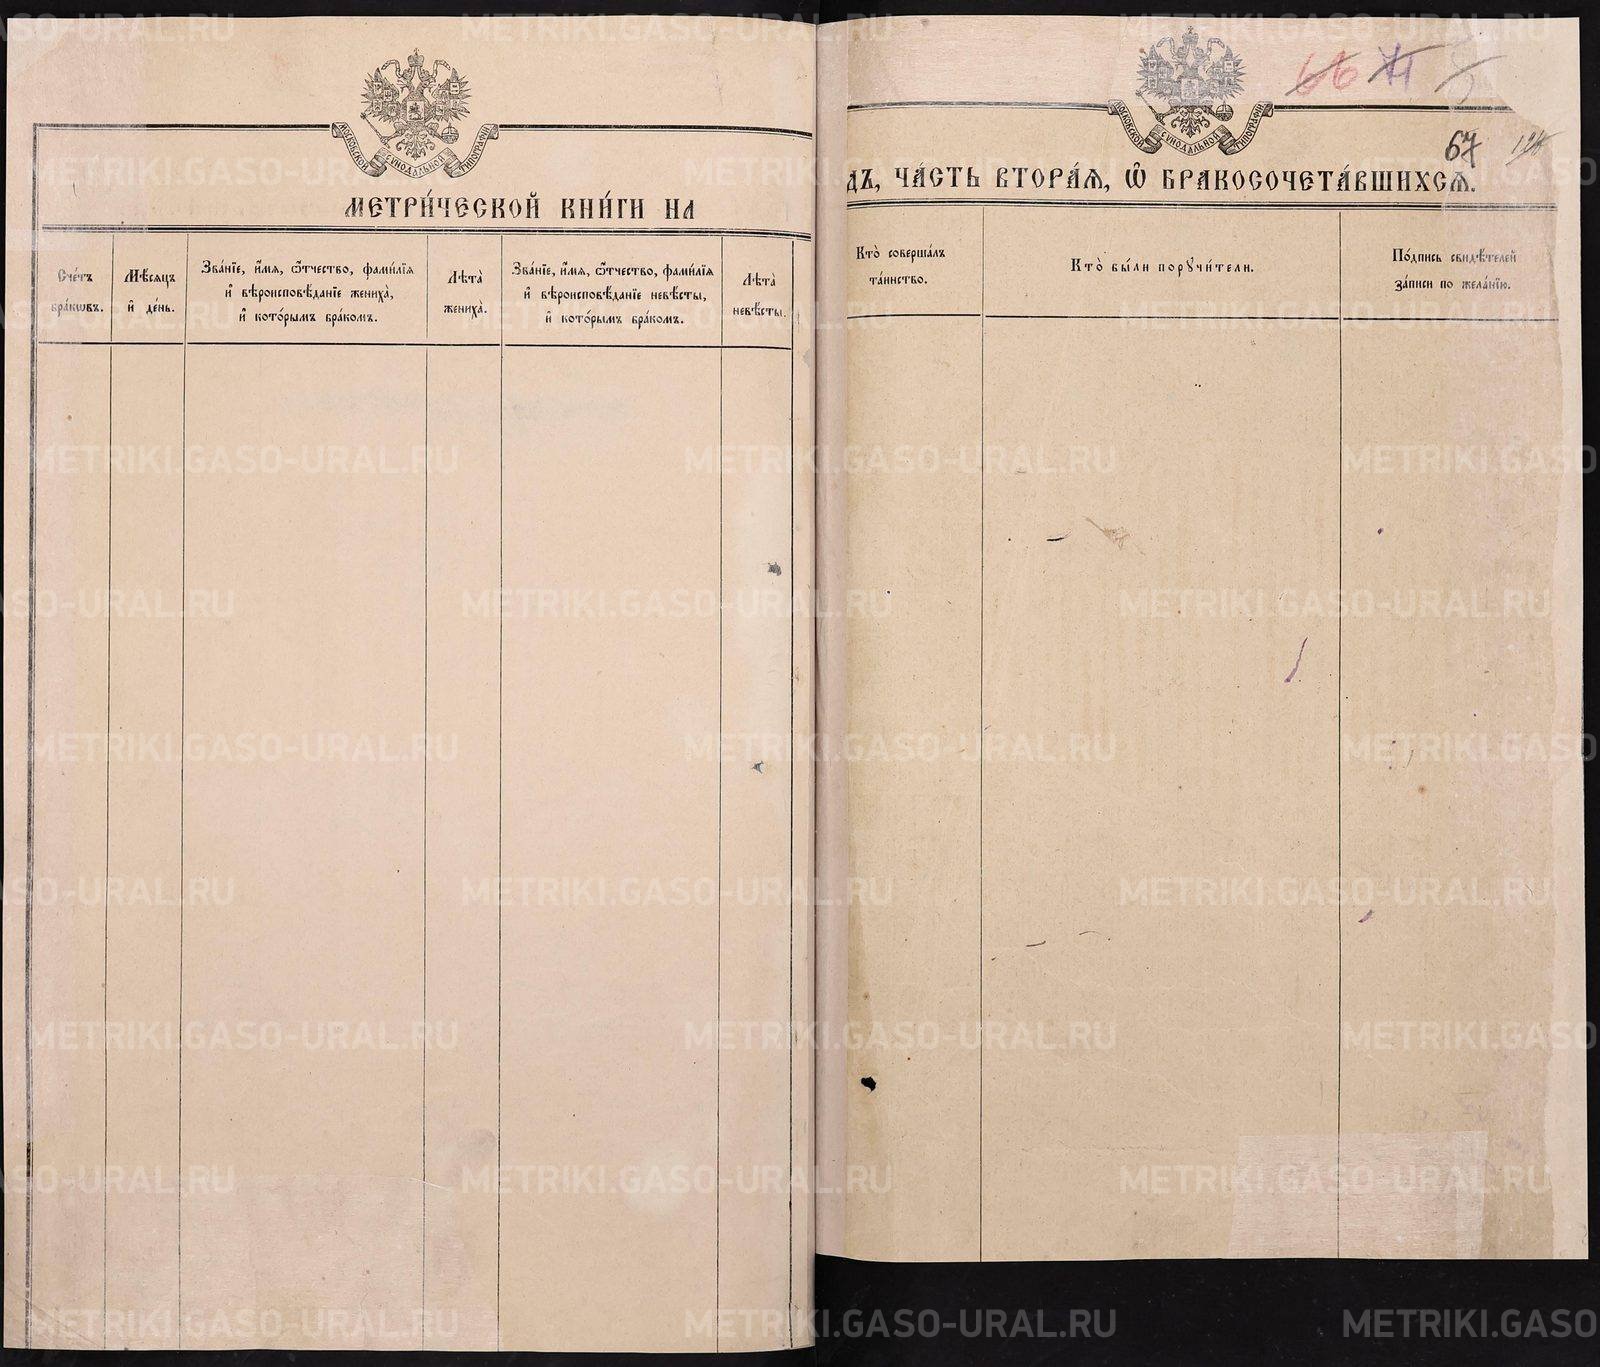 МОСКОВСКОЙ СѴНОДАЛЬНОЙ ТИПОГРАФІИ
МЕТРИ́ЧЕСКОЙ КНИ́ГИ НА
Сче́тъ бра́кѡвъ.
Мѣ́сяцъ и҆ де́нь.
Зва́нїе, и҆́мѧ, ѻ҆́тчество, фами́лїѧ
и҆ вѣроисповѣ́данїе жениха̀,
и҆ кото́рымъ бра́комъ.
Лѣта̀ жениха̀.
Зва́нїе, и҆́мѧ, ѻ҆́тчество, фами́лїѧ
и҆ вѣроисповѣ́данїе невѣ́сты,
и҆ кото́рымъ бра́комъ.
Лѣта̀ невѣ́сты.
66
67
МОСКОВСКОЙ СѴНОДАЛЬНОЙ ТИПОГРАФІИ
ДЪ, ЧА́СТЬ ВТОРА́Ѧ, Ѽ БРАКОСОЧЕТА́ВШИХСѦ.
Кто̀ соверша́лъ
та́инство.
Кто̀ бы́ли порꙋчи́тели.
По́дпись свидѣ́телей
за́писи по жела́нїю.
METRIKI.GASO-URAL.RU